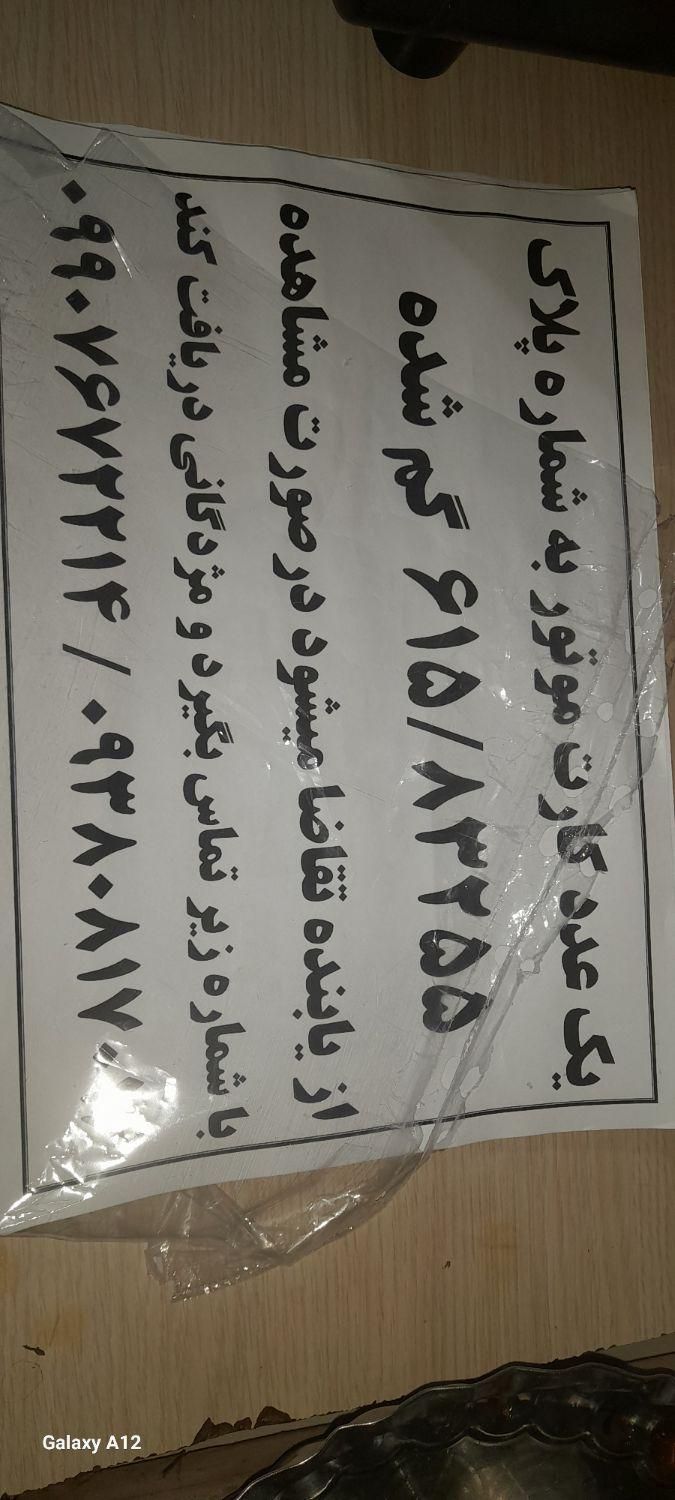 یک عدد کارت موتور به شماره پلاک
۶۱۵/۸۳۲۵۵ گم شده
از یابنده تقاضا میشود در صورت مشاهده
با شماره زیر تماس بگیرد و مژدگانی دریافت کند
۰۹۹۰۷۶۷۳۳۱۴ / ۰۹۳۸۰۸۱۷
Galaxy A12